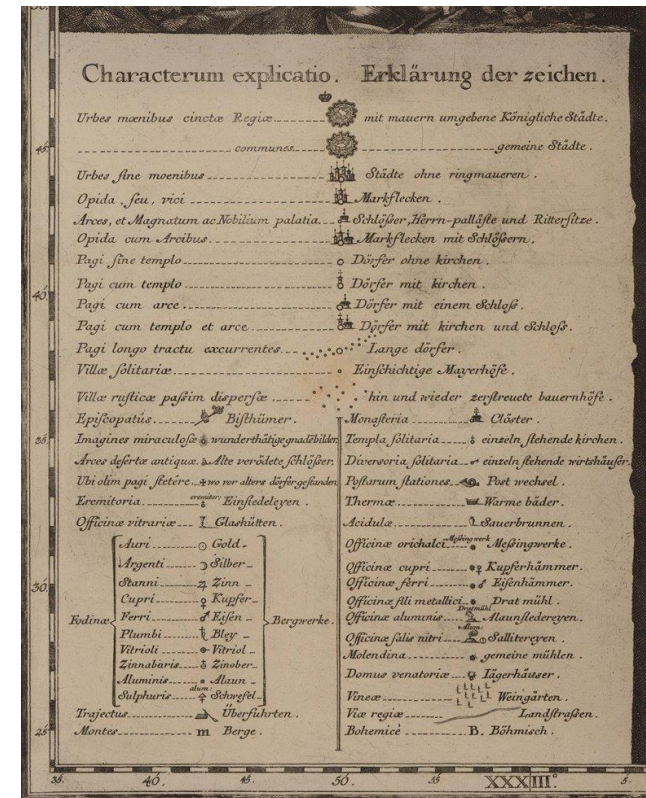 Characterum explicatio. Erklärung der zeichen.
Urbes mœnibus cinctæ Regiæ mit mauern umgebene Königliche Städte.
communes gemeine Städte.
Urbes ſine moenibus Städte ohne ringmaueren.
Opida, ſeu, vici Markflecken.
Arces, et Magnatum ac Nobilium palatia. Schlößer, Herrn-palläſte und Ritterſitze.
Opida cum Arcibus Markflecken mit Schlößern.
Pagi ſine templo Dörfer ohne kirchen.
Pagi cum templo Dörfer mit kirchen.
Pagi cum arce Dörfer mit einem Schloſs.
Pagi cum templo et arce Dörfer mit kirchen und Schloſs.
Pagi longo tractu excurrentes Lange dörfer.
Villæ ſolitariæ Einſchichtige Mayerhöfe.
Villæ ruſticæ paſsim disperſæ hin und wieder zerſtreuete bauernhöfe.
Epiſcopatûs Biſthümer.
Imagines miraculoſæ wunderthätige gnadēbilder
Arces deſertæ antiquæ Alte verödete ſchlößer.
Ubi olim pagi ſtetére wo vor alters dörfer geſtanden
Eremitoria eremitory Einſiedeleyen.
Officinæ vitrariæ Glashütten.
Fodinæ
Auri Gold
Argenti Silber
Stanni Zinn
Cupri Kupfer
Ferri Eiſen
Plumbi Bley
Vitrioli Vitriol
Zinnabaris Zinober
Aluminis Alaun
Sulphuris alum. Schwefel
Bergwerke.
Trajectus Überfuhrten.
Montes m Berge.
Monaſteria Clöster.
Templa ſolitaria einzeln ſtehende kirchen.
Diverſoria ſolitaria einzeln ſtehende wirtshäuſer.
Poſtarum ſtationes Post wechsel.
Thermæ Warme bäder.
Acidulæ Sauerbrunnen.
Officinæ orichalci Meſsingwerk Meſsingwerke.
Officinæ cupri Kupferhämmer.
Officinæ ferri Eiſenhämmer.
Officinæ fili metallici Dratmühl Drat mühl.
Officinæ aluminis Alaunſiedereyen.
Officinæ ſalis nitri Alum: Sallitereyen.
Molendina gemeine mühlen.
Domus venatoriæ Iägerhäuser.
Vineæ Weingärten.
Viæ regiæ Landſtraßen.
Bohemicè B. Böhmisch.
45.
40.
35.
30.
25.
35. 40. 45. 50. 55 XXXIII°